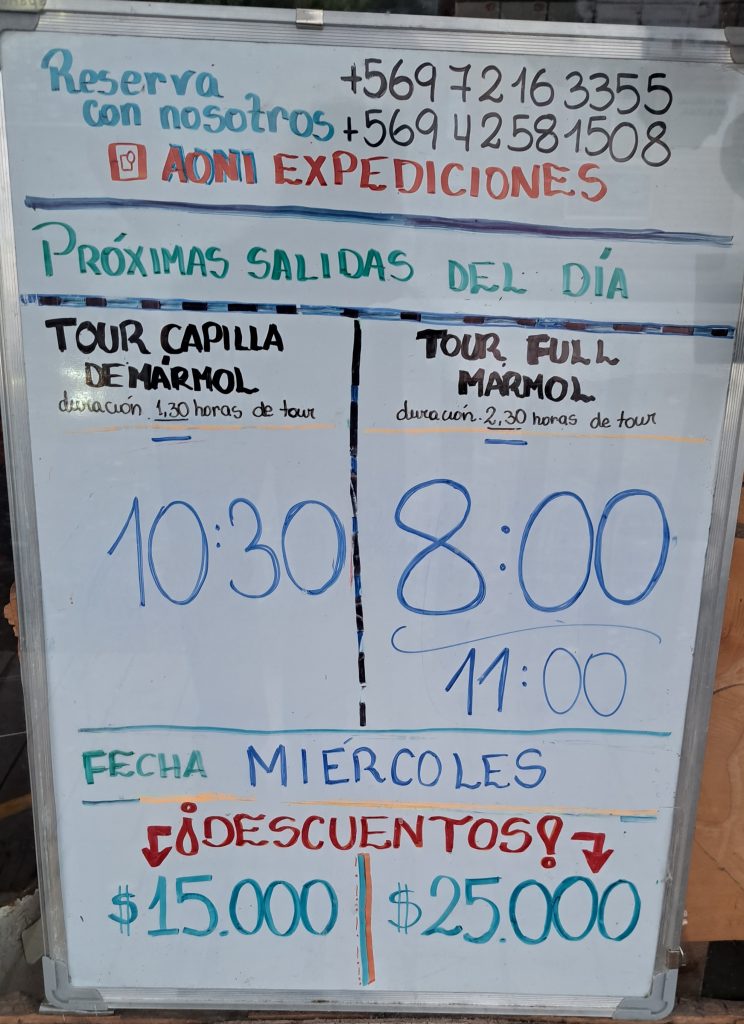 Reserva +569 72163355
con nosotros +569 42581508
AONI EXPEDICIONES
PRÓXIMAS SALIDAS DEL DÍA
TOUR CAPILLA
DE MÁRMOL
duración 1,30 horas de tour
10:30
TOUR FULL
MÁRMOL
duración 2,30 horas de tour
8:00
11:00
FECHA MIÉRCOLES
¡DESCUENTOS!
$15.000 $25.000